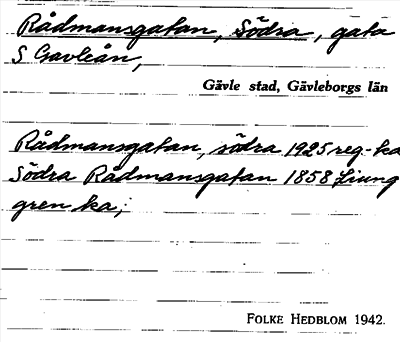 Rådmansgatan, Södra, gata
S Gavleån,
Gävle stad, Gävleborgs län
Rådmansgatan, södra 1925 reg-ka
Södra Rådmansgatan 1858 Ljung
gren ka;
FOLKE HEDBLOM 1942.